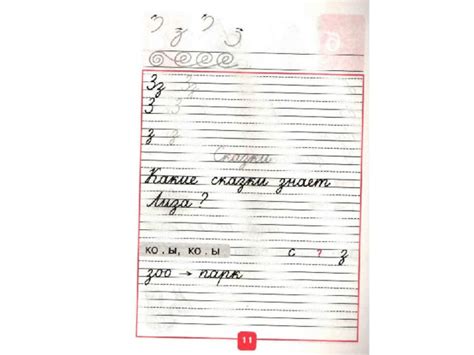 З з З З
Зз Зз
З З
з з
Сказки
Какие сказки знает
Лиза?
ко . ы, ко . ы с ? з
зоо → парк
11